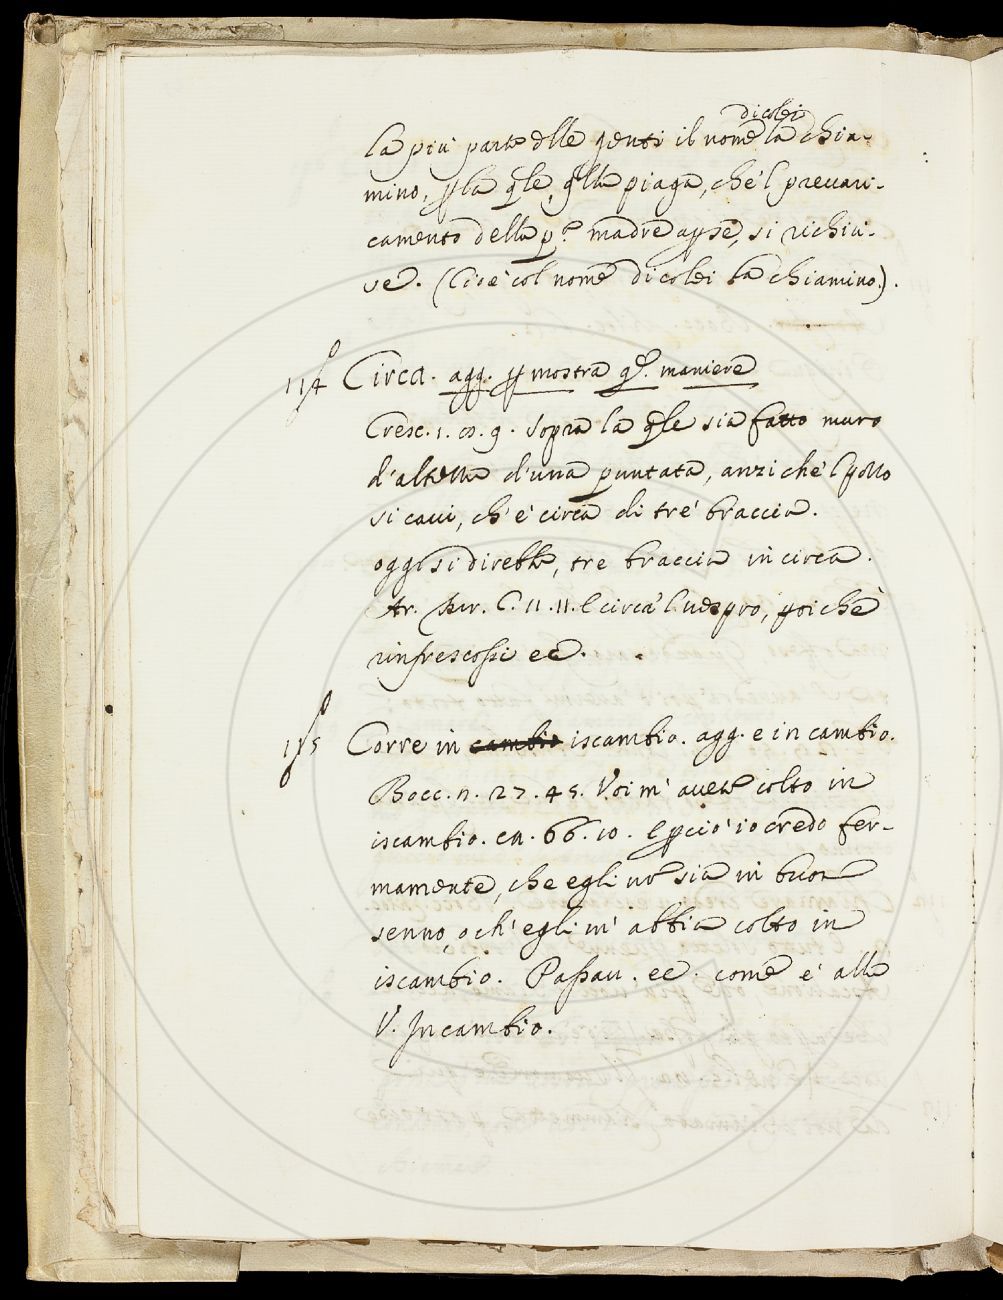 di colei
la più parte delle genti il nome la chia-
mino, p la qle, qlla piaga, che'l preuari-
camento della pa. madre aperse, si richiu-
se. (Cioè col nome di colei la chiamino.).
114 Circa. agg. p mostra qto. maniere
Cresc. 1. cs. 9. Sopra la qle sia fatto muro
d'altezza d'una puntata, anzi che'l pozzo
si caui, ch'è circa di tré braccia.
oggi si direbbe, tre braccia in circa.
Ar. Fur. C. 11. 11. E circa'l uespro, poiche
rinfrescossi ec.
115 Corre in cambio iscambio. agg. e in cambio.
Bocc. n. 27. 45. Voi m'auete colto in
iscambio. en. 66. 10. E pciò io credo fer-
mamente, che egli nō sia in buon
senno, o ch'egli m'abbia colto in
iscambio. Passau. ec. come è alla
V. Incambio.